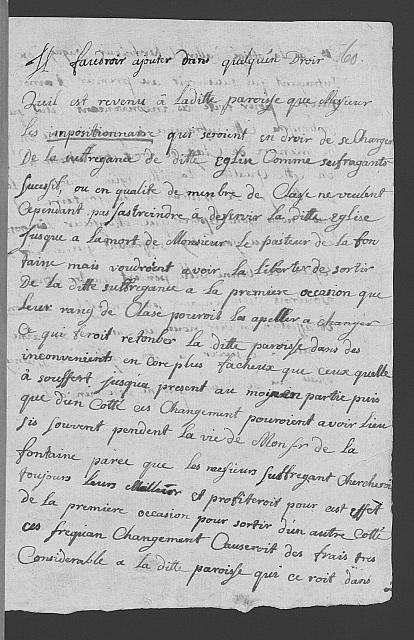 Il faudroit ajouter dans quelqu'un Droir 60.
Quil est revenu à Laditte paroisse que Messieur
les impositionnaire qui seroient en droir de se Charger
De la suffregance de ditte Eglise Comme sufragants
sucesif, ou en qualité de menbre de Clase ne veulent
Cependant pas sastreindre à deservir la ditte Eglise
Jusque a la mort de Monsieur Le pasteur de la fon
taine mais voudroient avoir la liberter de sortir
De la ditte suffregance a la premiere occasion que
Leur rang de Clase pouroit les apeller a Changer
Ce qui feroit retonber la ditte paroisse dans des
inconvenients en Core plus facheux que ceux quelle
à souffert jusqua present au moins en partie puis
que d'un Cotté ces Changement pouroient avoir Lieu
sis souvent pendent la vie de Monsr de la
fontaine parce que les messieurs suffregant Chercheront
toujours Leurs Meilleur et profiteroit pour cest effet
de la premiere occasion pour sortir d'un autre Cotté
ces frequan Changement Causeroit des frais tres
Considerable a la ditte paroisse qui ce roit dans